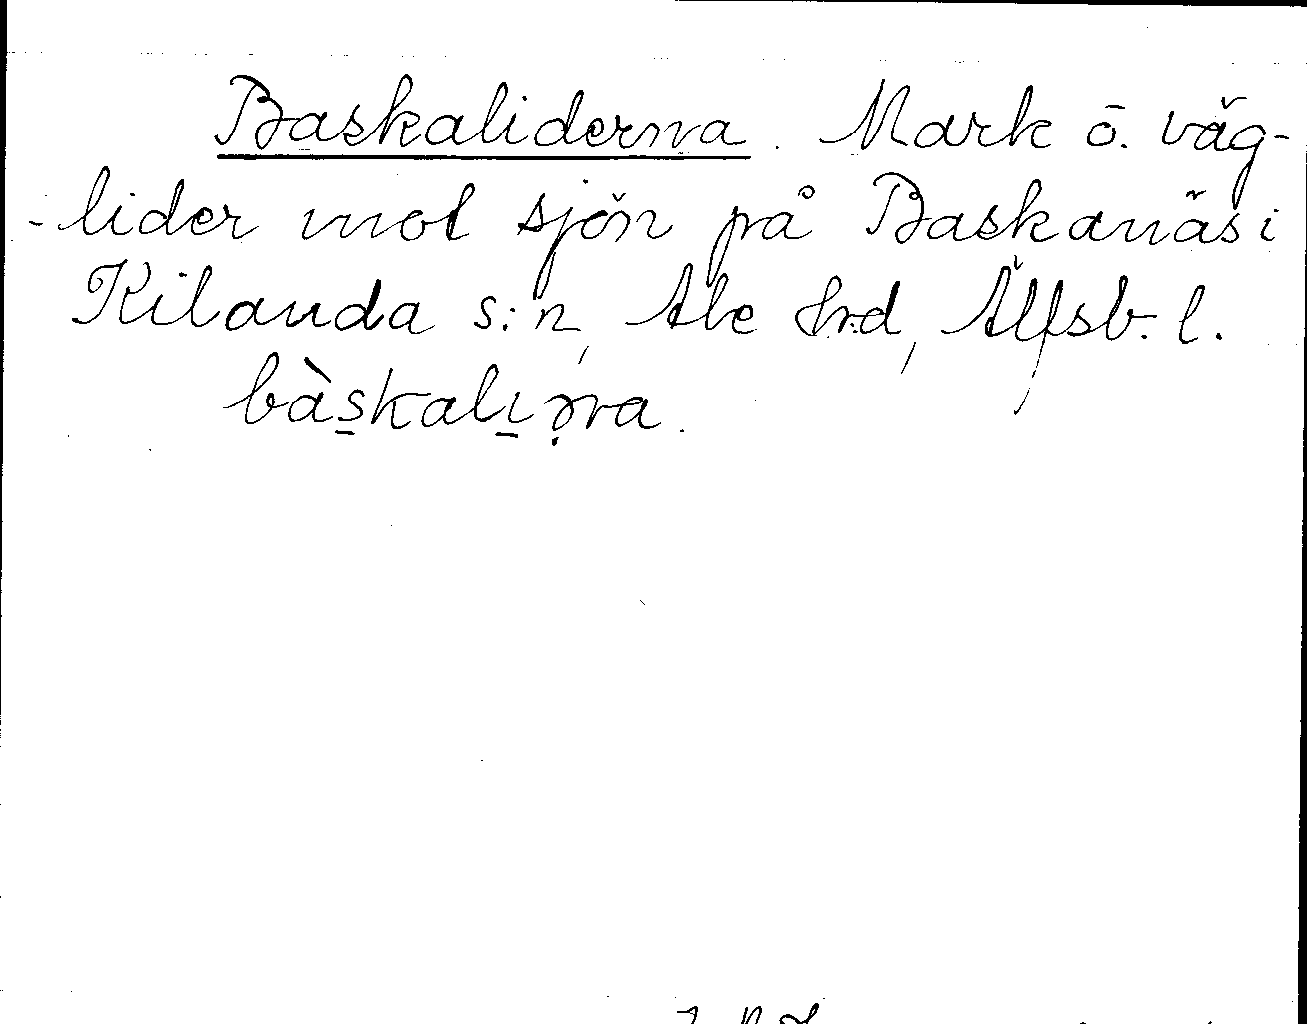 Baskaliderna. Mark o. väg-
-lider mot sjön på Baskanäs i
Kilanda s:n, Ale hrd, Älfsb. l.
bàs̠kalɩ̠ə̣ṛna.